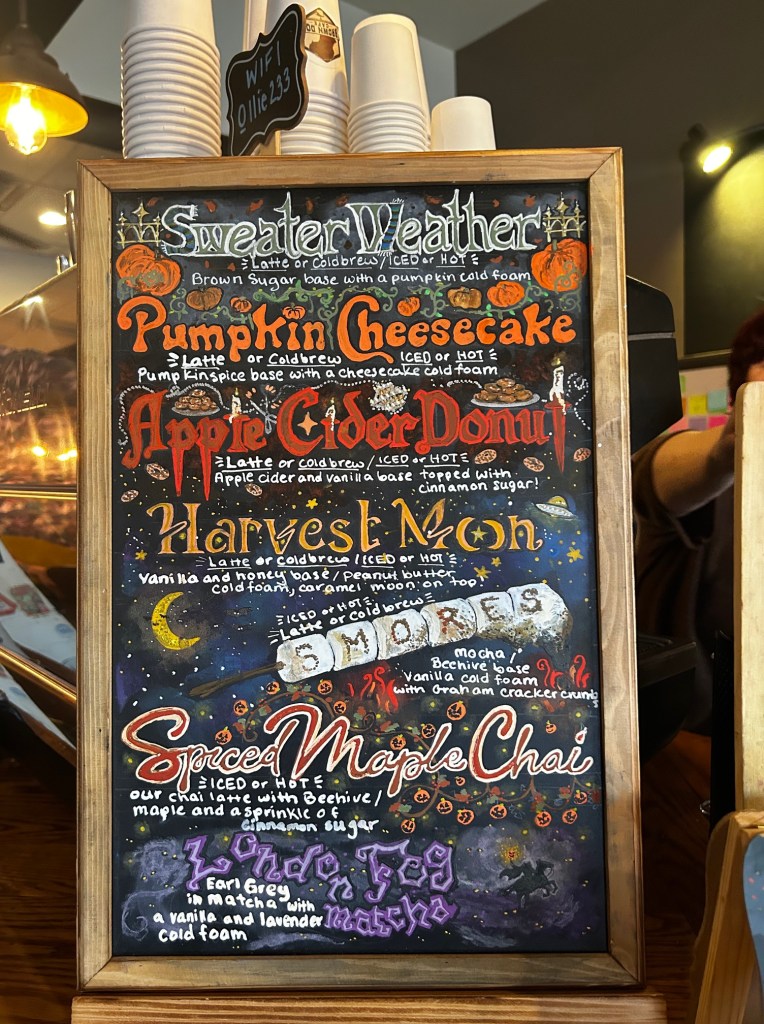 WIFI
Ollie233
Sweater Weather
Latte or Coldbrew / ICED or HOT
Brown Sugar base with a pumpkin cold foam
Pumpkin Cheesecake
Latte or Coldbrew ICED or HOT
Pumpkin spice base with a cheesecake cold foam
Apple Cider Donut
Latte or Coldbrew / ICED or HOT
Apple cider and vanilla base topped with
cinnamon sugar!
Harvest Moon
Latte or Coldbrew / ICED or HOT
Vanilla and honey base / peanut butter
cold foam, caramel moon on top!
ICED or HOT
Latte or Coldbrew
SMORES
mocha /
Beehive base
Vanilla cold foam
with Graham cracker crumbs
Spiced Maple Chai
ICED or HOT
our chai latte with Beehive /
maple and a sprinkle of
cinnamon sugar
London Fog
matcha
Earl Grey
in matcha with
a vanilla and lavender
cold foam